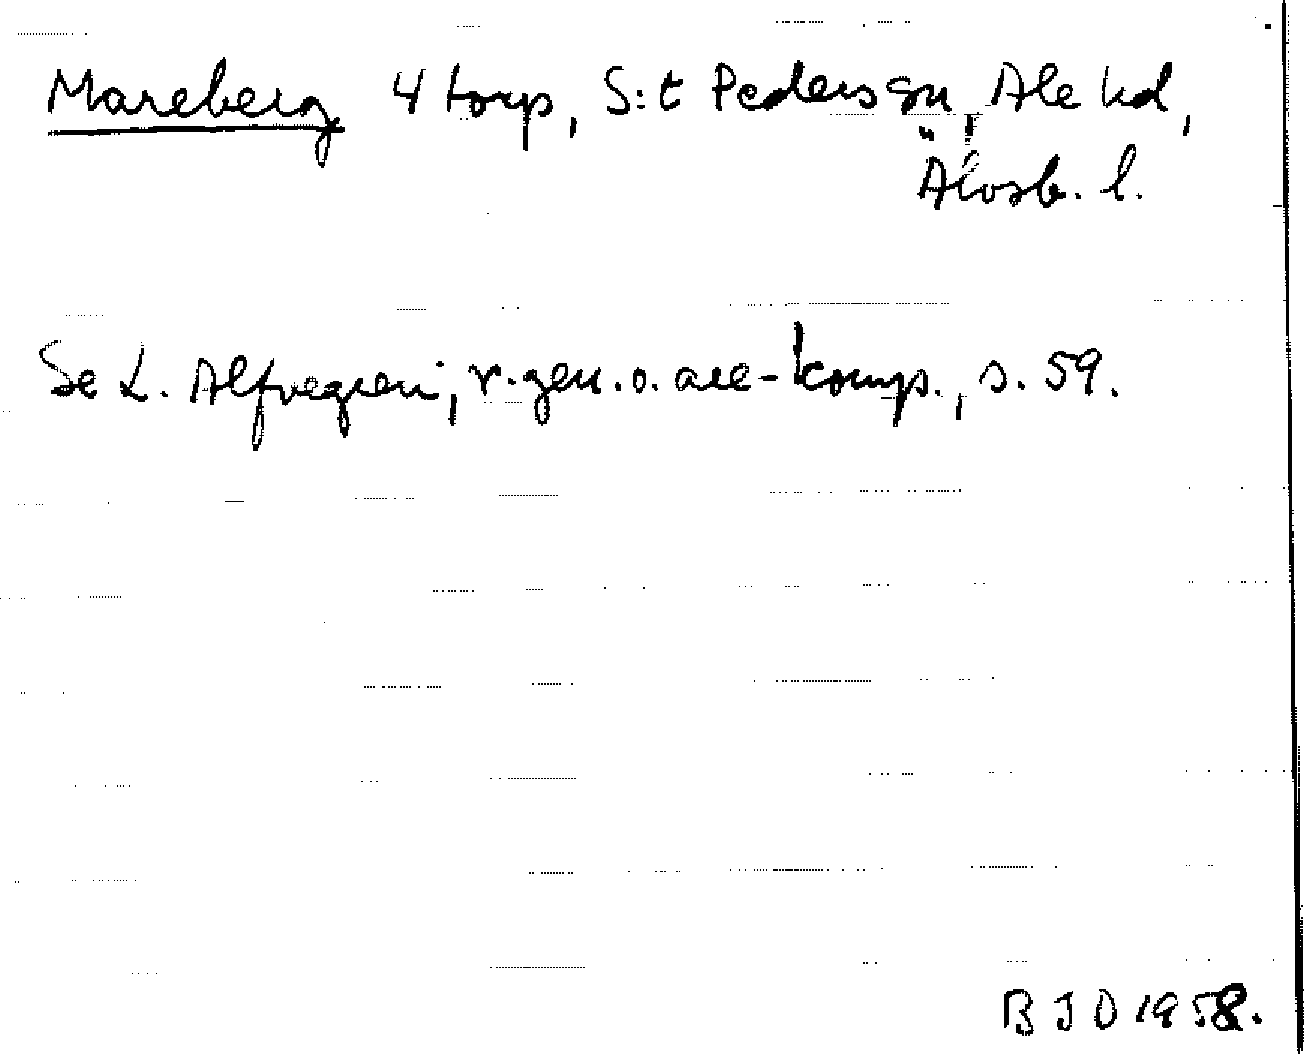 Mareberg 4 torp, S:t Peders sn, Ale hd,
Älvsb. l.
Se L. Alfvegren, r-gen. o. ack-komp., s. 59.
B J D 1958.